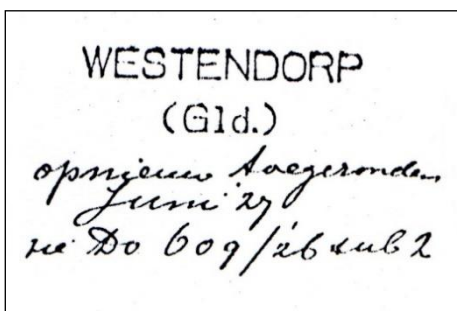 WESTENDORP
(Gld.)
opnieuw toegezonden
Juni '27
zie Do 609/26 sub 2